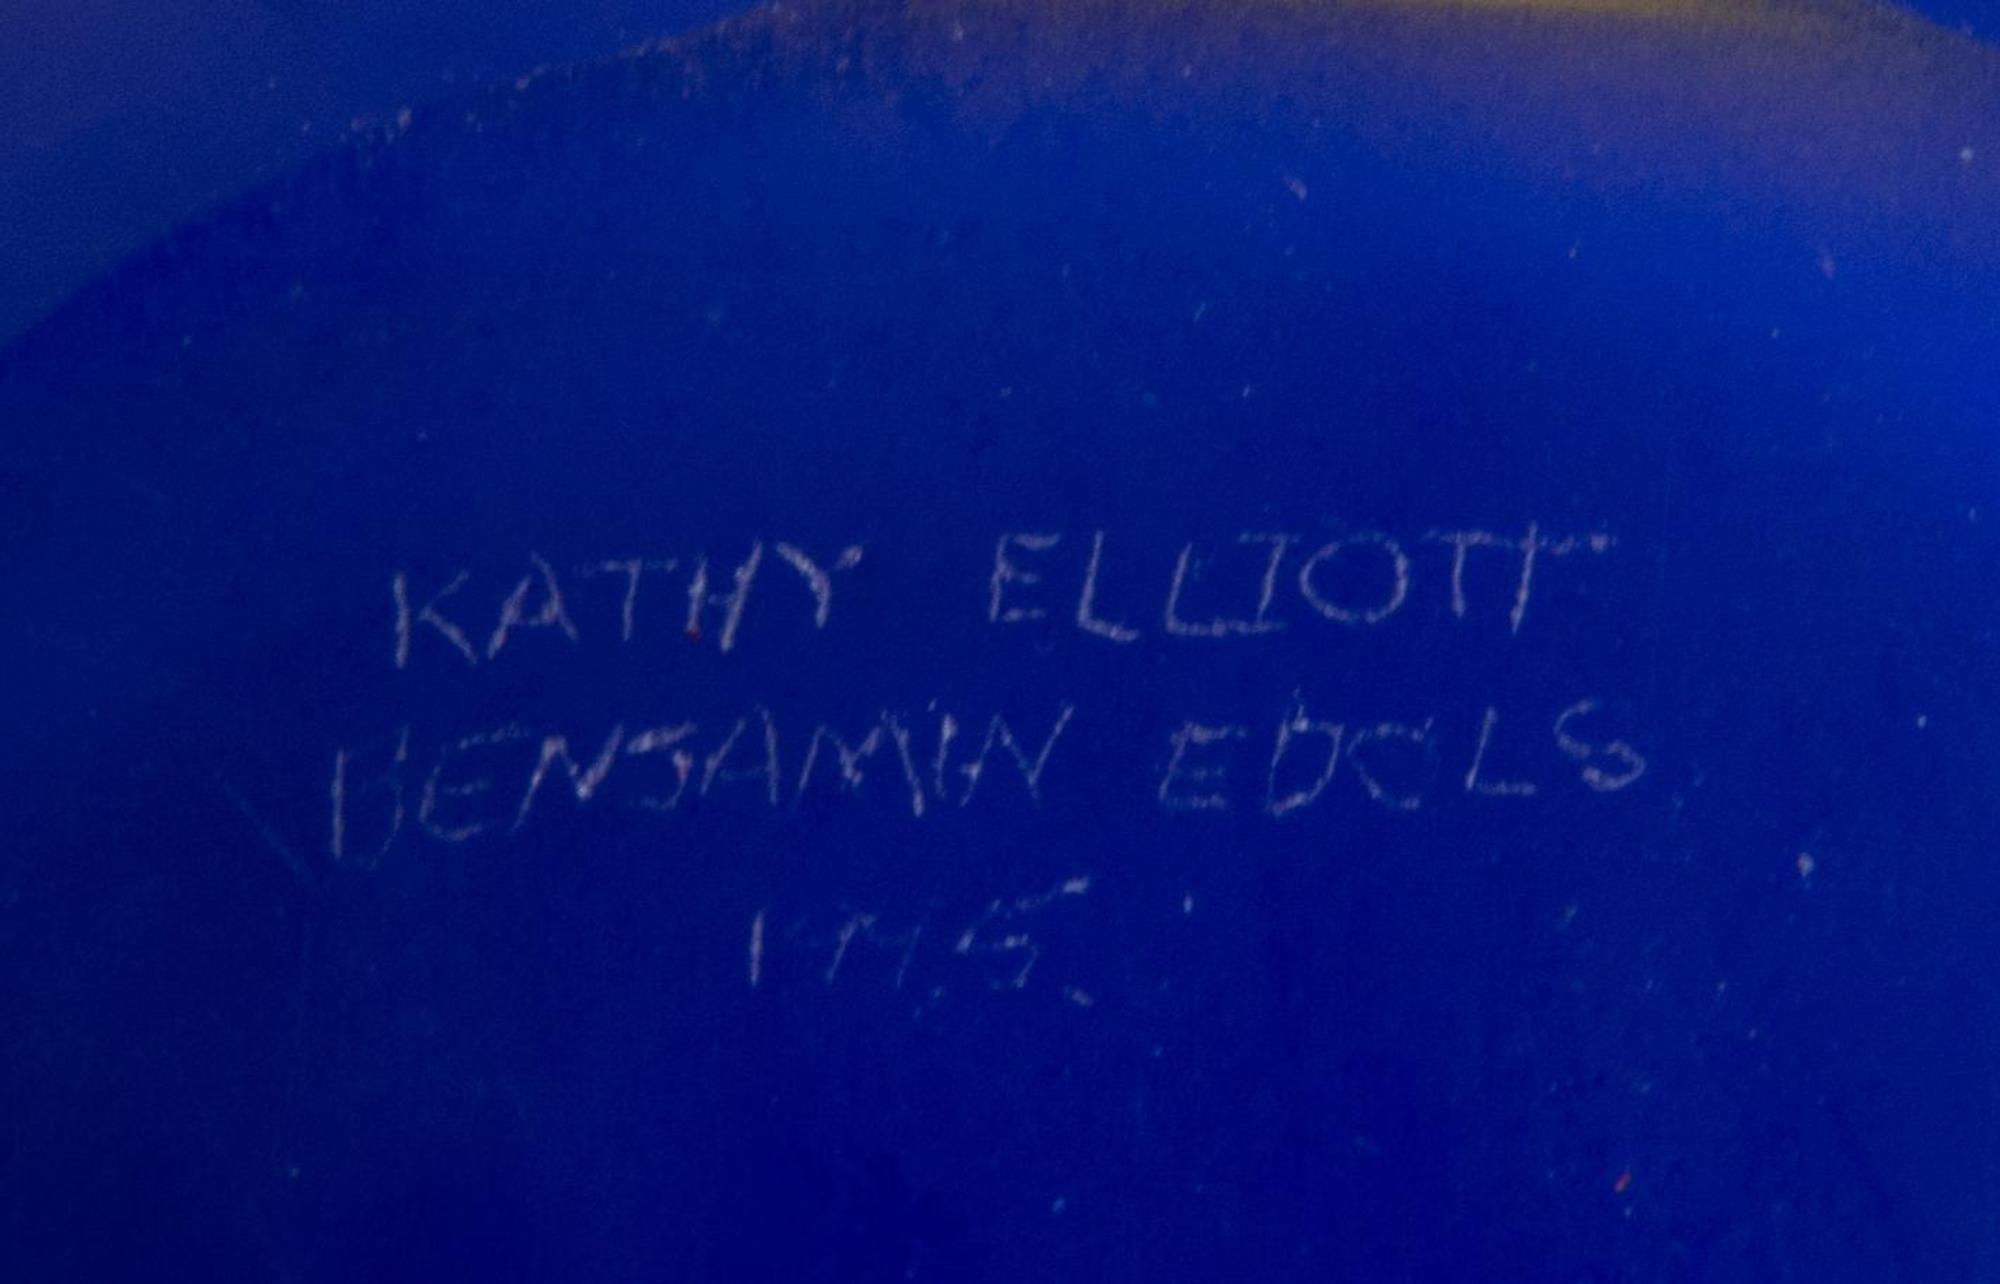 KATHY ELLIOTT
BENJAMIN EDOLS